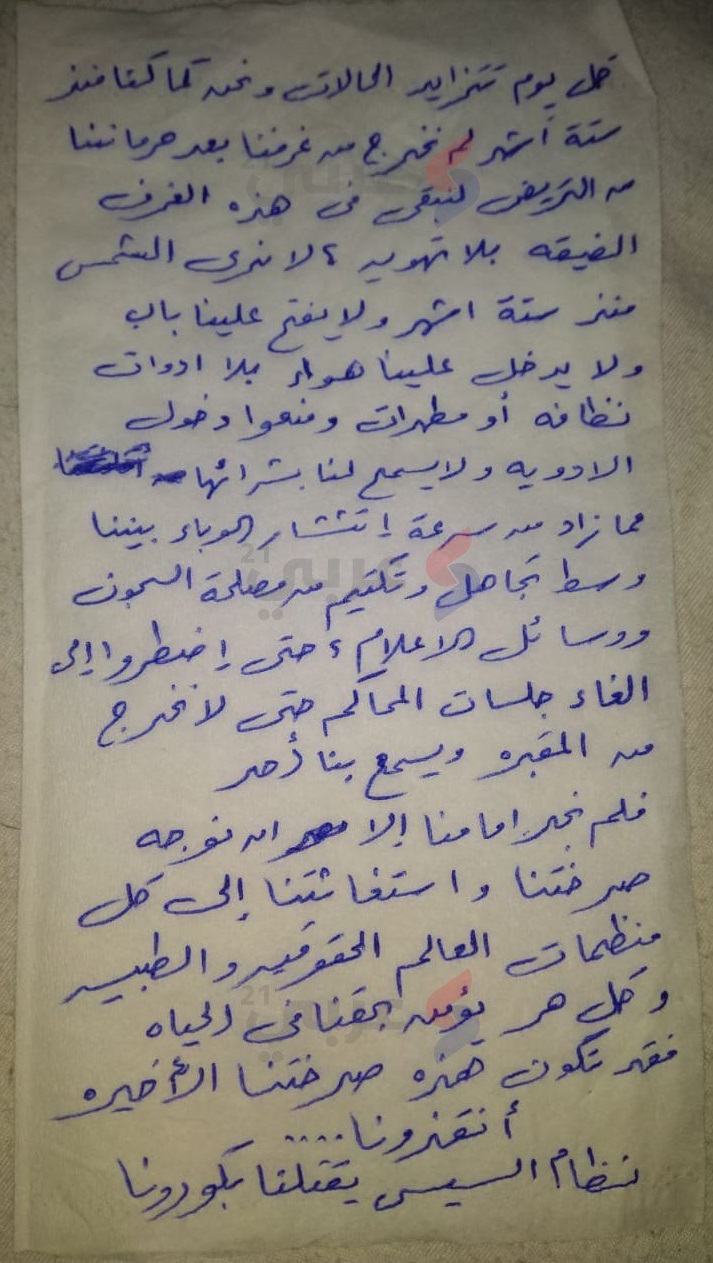 كل يوم تتزايد الحالات ونحن كما كنا منذ
ستة أشهر لم نخرج من غرفنا بعد حرماننا
من التريض لنبقى فى هذه الغرف
الضيقه بلا تهويه ، لا نرى الشمس
منذ ستة اشهر ولا يفتح علينا باب
ولا يدخل علينا هواء بلا ادوات
نظافه أو مطهرات ومنعوا دخول
الادويه ولا يسمح لنا بشرائها
مما زاد من سرعة إنتشار الوباء بيننا
وسط تجاهل وتكتيم من مصلحة السجون
ووسائل الاعلام ، حتى إضطروا إلى
الغاء جلسات المحاكم حتى لا نخرج
من المقبره ويسمع بنا أحد
فلم نجد امامنا إلا ان نوجه
صرختنا واستغاثتنا إلى كل
منظمات العالم الحقوقيه والطبيه
وكل حر يؤمن بحقنا فى الحياه
فقد تكون هذه صرختنا الأخيره
أنقذونا ....
نظام السيسى يقتلنا بكورونا
عربي 21
عربي 21
عربي 21